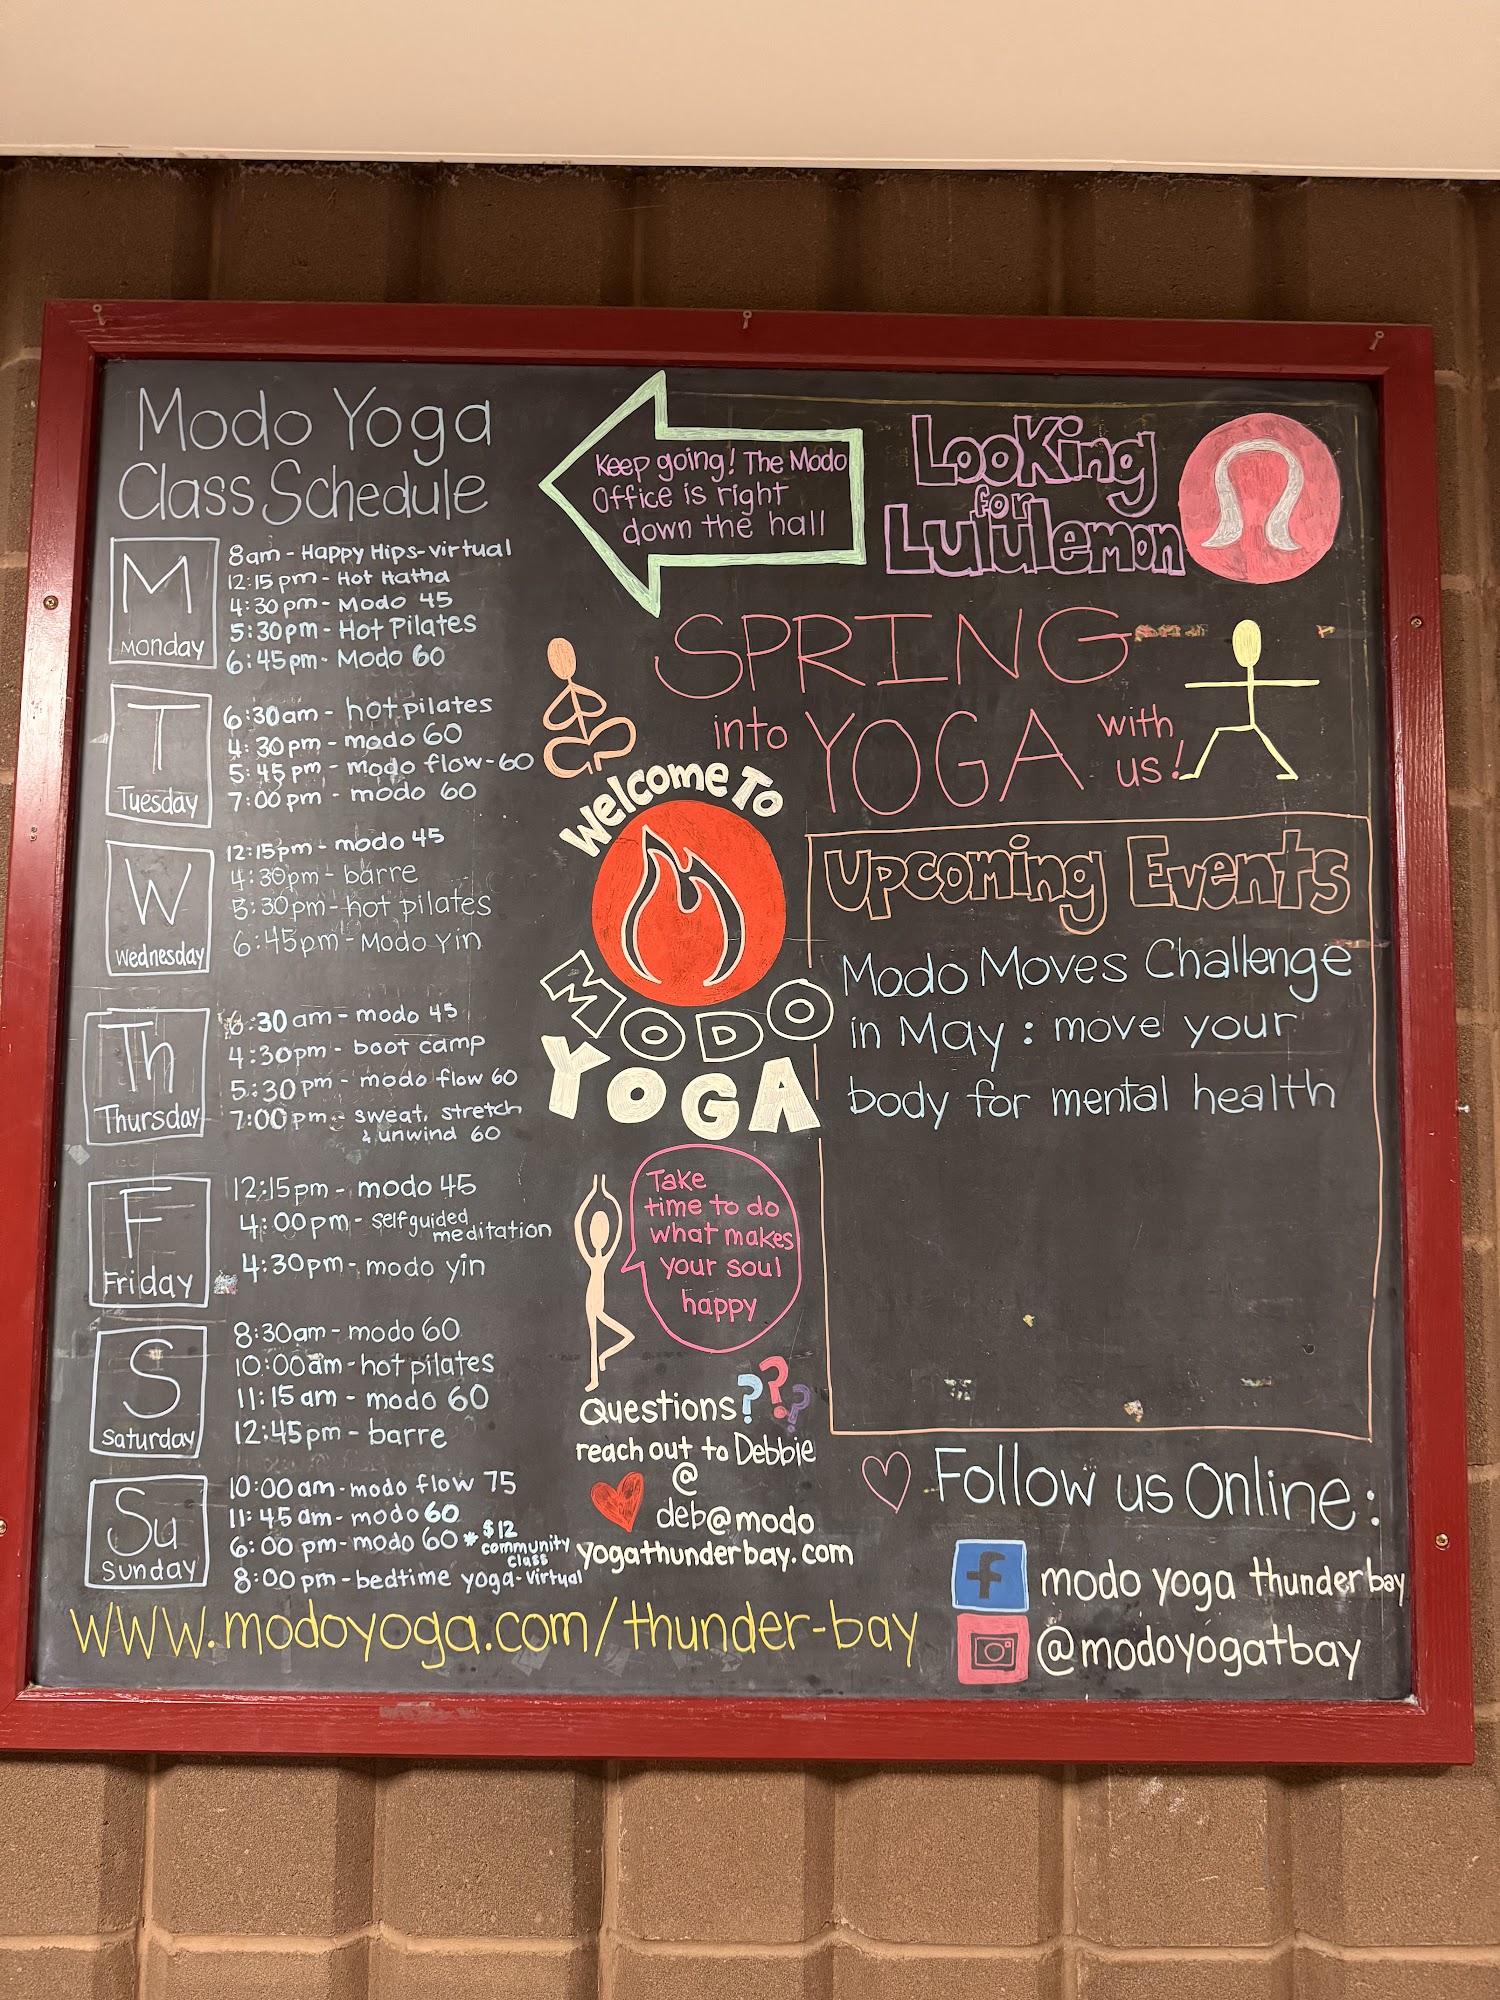 Modo Yoga
Class Schedule
M
Monday
8am - Happy Hips - virtual
12:15 pm - Hot Hatha
4:30 pm - Modo 45
5:30pm - Hot Pilates
6:45pm - Modo 60
T
Tuesday
6:30am - hot pilates
4:30pm - modo 60
5:45 pm - modo flow - 60
7:00 pm - modo 60
W
Wednesday
12:15pm - modo 45
4:30pm - barre
5:30pm - hot pilates
6:45pm - Modo Yin
Th
Thursday
6:30 am - modo 45
4:30pm - boot camp
5:30 pm - modo flow 60
7:00 pm - sweat, stretch
& unwind 60
F
Friday
12:15pm - modo 45
4:00pm - self guided
meditation
4:30pm - modo yin
S
Saturday
8:30am - modo 60
10:00am - hot pilates
11:15 am - modo 60
12:45pm - barre
Su
Sunday
10:00 am - modo flow 75
11:45 am - modo 60
6:00 pm - modo 60 * $12
community
class
8:00pm - bedtime yoga - virtual
www.modoyoga.com/thunder-bay
Keep going! The Modo
Office is right
down the hall
Looking
for
Lululemon
SPRING
into YOGA with
us!
Welcome To
MODO
YOGA
Take
time to do
what makes
your soul
happy
Questions???
reach out to Debbie
@
deb@modo
yogathunderbay.com
Upcoming Events
Modo Moves Challenge
in May: move your
body for mental health
Follow us Online:
f modo yoga thunder bay
@modoyogatbay